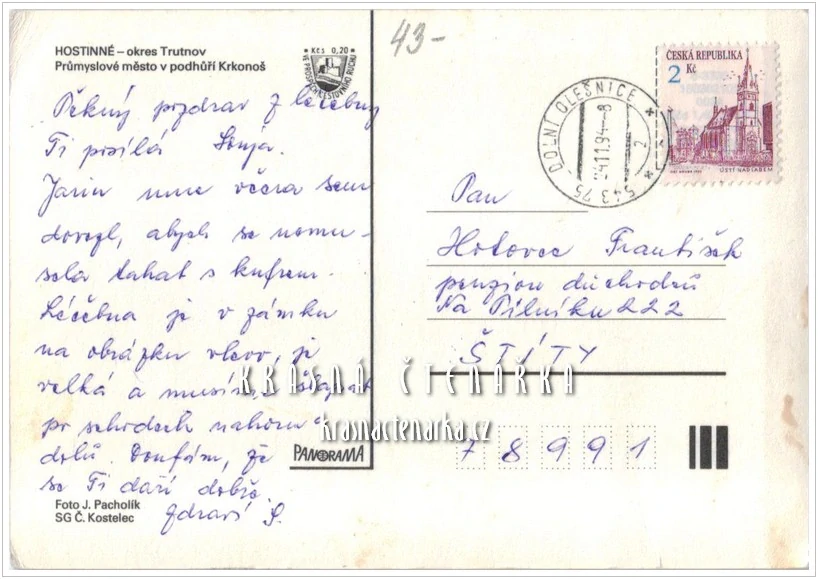 HOSTINNÉ – okres Trutnov
Průmyslové město v podhůří Krkonoš
Kčs 0,20
VE PROSPĚCH CESTOVNÍHO RUCHU
43-
Pěkný pozdrav z léčebny
Ti posílá Sonja.
Jarin mne včera sem
dovezl, abych se nemu-
sela tahat s kufrem.
Léčebna je v zámku
na obrázku vlevo, je
velká a musíme šlapat
po schodech nahoru
dolů. Doufám, že
se Ti daří dobře.
Zdraví S.
Foto J. Pacholík
SG Č. Kostelec
PANORAMA
DOLNÍ OLEŠNICE
11.94-8
543 75
2
ČESKÁ REPUBLIKA
2 Kč
ÚSTÍ NAD LABEM
Pan
Hotovec František
penzion důchodců
Na Pilníku 222
ŠTÍTY
78991
KRÁSNÁ ČTENÁŘKA
krasnactenarka.cz